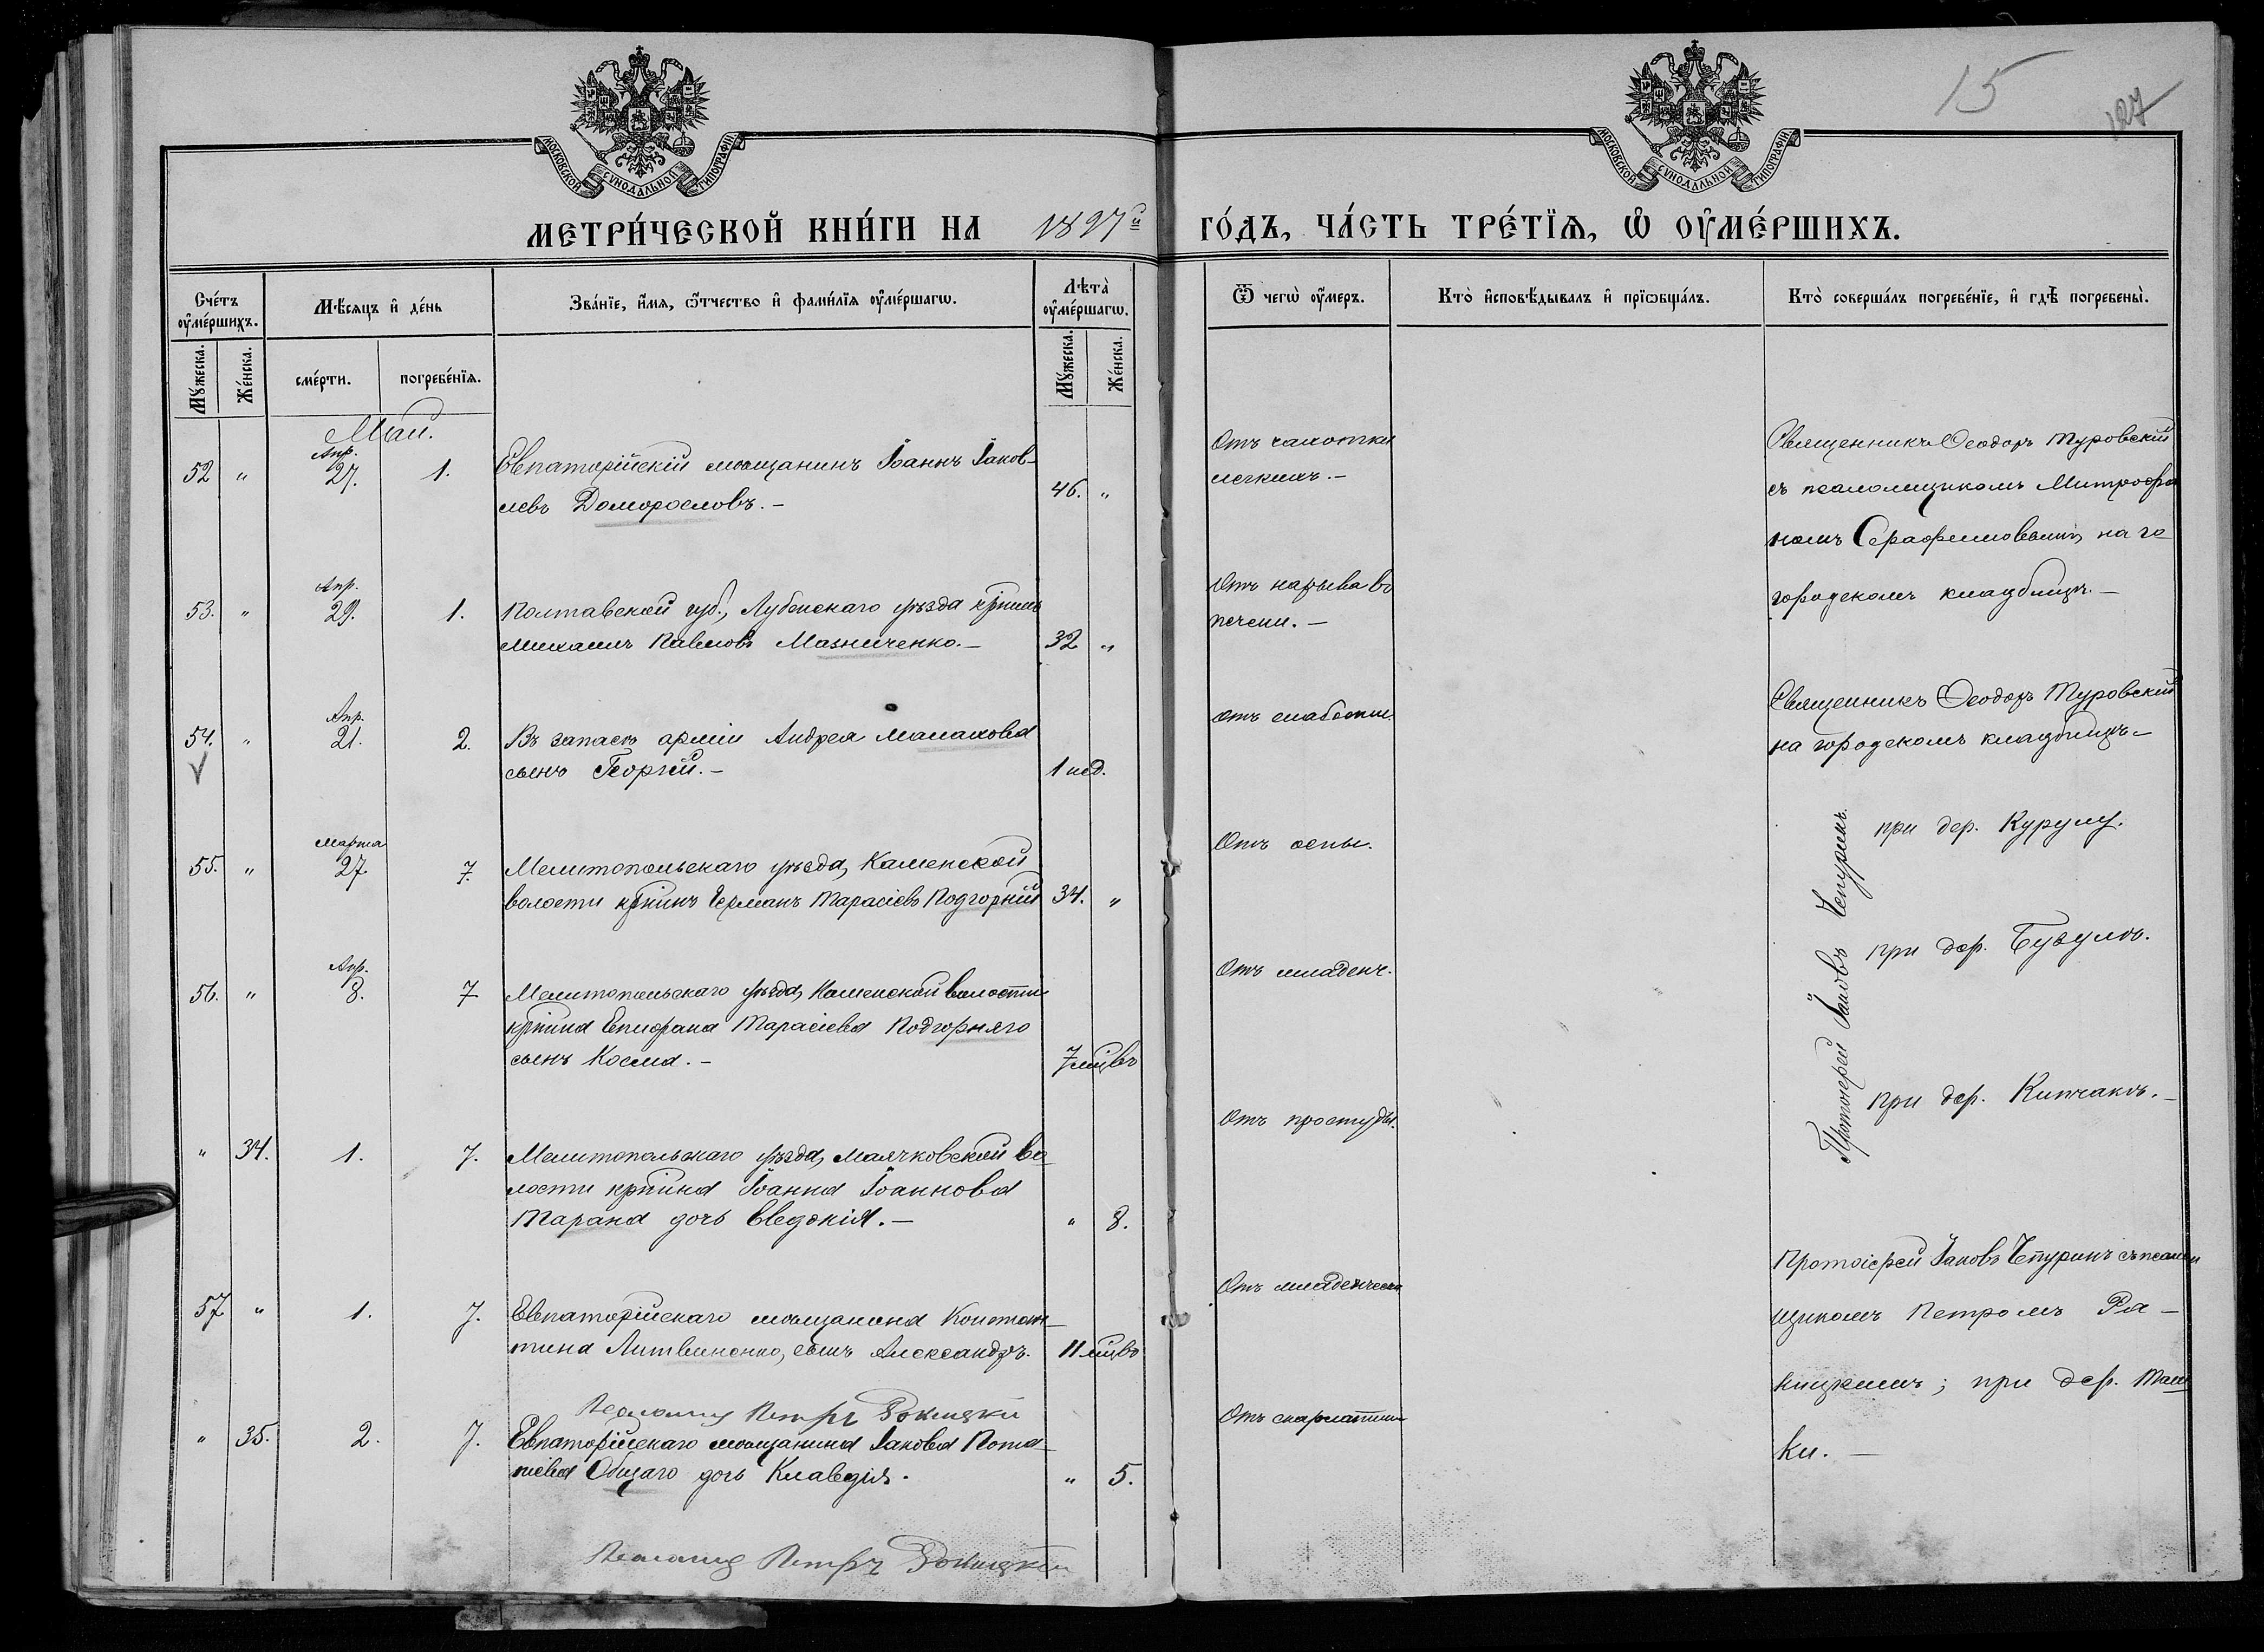 15
127
МОСКОВСКОЙ СѴНОДАЛЬНОЙ ТИПОГРАФІИ.
МОСКОВСКОЙ СѴНОДАЛЬНОЙ ТИПОГРАФІИ.
МЕТРИ́ЧЕСКОЙ КНИ́ГИ НА 1897й ГО́ДЪ, ЧА́СТЬ ТРЕ́ТІѦ, Ѡ҆ ОУ҆МЕ́РШИХЪ.
Сче́тъ оу҆ме́ршихъ.
Мѣ́сяцъ и҆ де́нь
Зва́нїе, и҆́мѧ, ѻ҆́тчество и҆ фами́лїѧ оу҆ме́ршагѡ.
Лѣта̀ оу҆ме́ршагѡ.
Ѿ чегѡ̀ оу҆́меръ.
Кто̀ и҆сповѣ́дывалъ и҆ прїѡбща́лъ.
Кто̀ соверша́лъ погребе́нїе, и҆ гдѣ̀ погребены̀.
Мꙋ́жеска.
Же́нска.
сме́рти.
погребе́нїѧ.
Мꙋ́жеска.
Же́нска.
Май.
52 " Апр. 27. 1. Евпаторійскій мѣщанинъ Іоаннъ Іаков-
левъ Доморословъ. – 46. "
Отъ чахотки
легкихъ. –
Священникъ Ѳеодоръ Туровскій
съ псаломщикомъ Митрофа
номъ Серафимовымъ, на го
городскомъ кладбищѣ. –
53. " Апр. 29. 1. Полтавской губ., Лубенскаго уѣзда крнинъ
Михаилъ Павловъ Мазниченко. – 32 "
Отъ нарыва въ
печени. –
54. " Апр. 21. 2. Въ запасѣ арміи Андрея Малахова
сынъ Георгій. – 1 нед.
отъ слабости.
Священникъ Ѳеодоръ Туровскій
на городскомъ кладбищѣ –
55. " Марта 27 7. Мелитопольскаго уѣзда, Каменской
волости крнинъ Германъ Тарасіевъ Подгорній 34. "
Отъ оспы.
при дер. Курулу.
56. " Апр. 8. 7 Мелитопольскаго уѣзда, Каменской волости
крнина Епифана Тарасіева Подгорняго
сынъ Косма. – 7 мцвъ
Отъ младенч.
при дер. Бузулъ.
Протоіерей Іаковъ Чепуринъ.
" 34. 1. 7. Мелитопольскаго уѣзда, Маячковской во-
лости крнина Іоанна Іоаннова
Тарана дочь Евдокія. – " 8.
Отъ простуды.
при дер. Кипчакъ. –
57 " 1. 7. Евпаторійскаго мѣщанина Констан-
тина Литвиненко, сынъ Александръ. 11 мцвъ
Отъ младенческ
Протоіерей Іаковъ Чепуринъ съ псалом
щикомъ Петромъ Ра-
кицкимъ; при дер.
ки. –
Псаломщ Петръ Ракицкій
" 35. 2. 7. Евпаторійскаго мѣщанина Іакова Пота-
піева Общаго дочь Клавдія. " 5.
Отъ скарлатины
Псаломщ Петръ Ракицкій